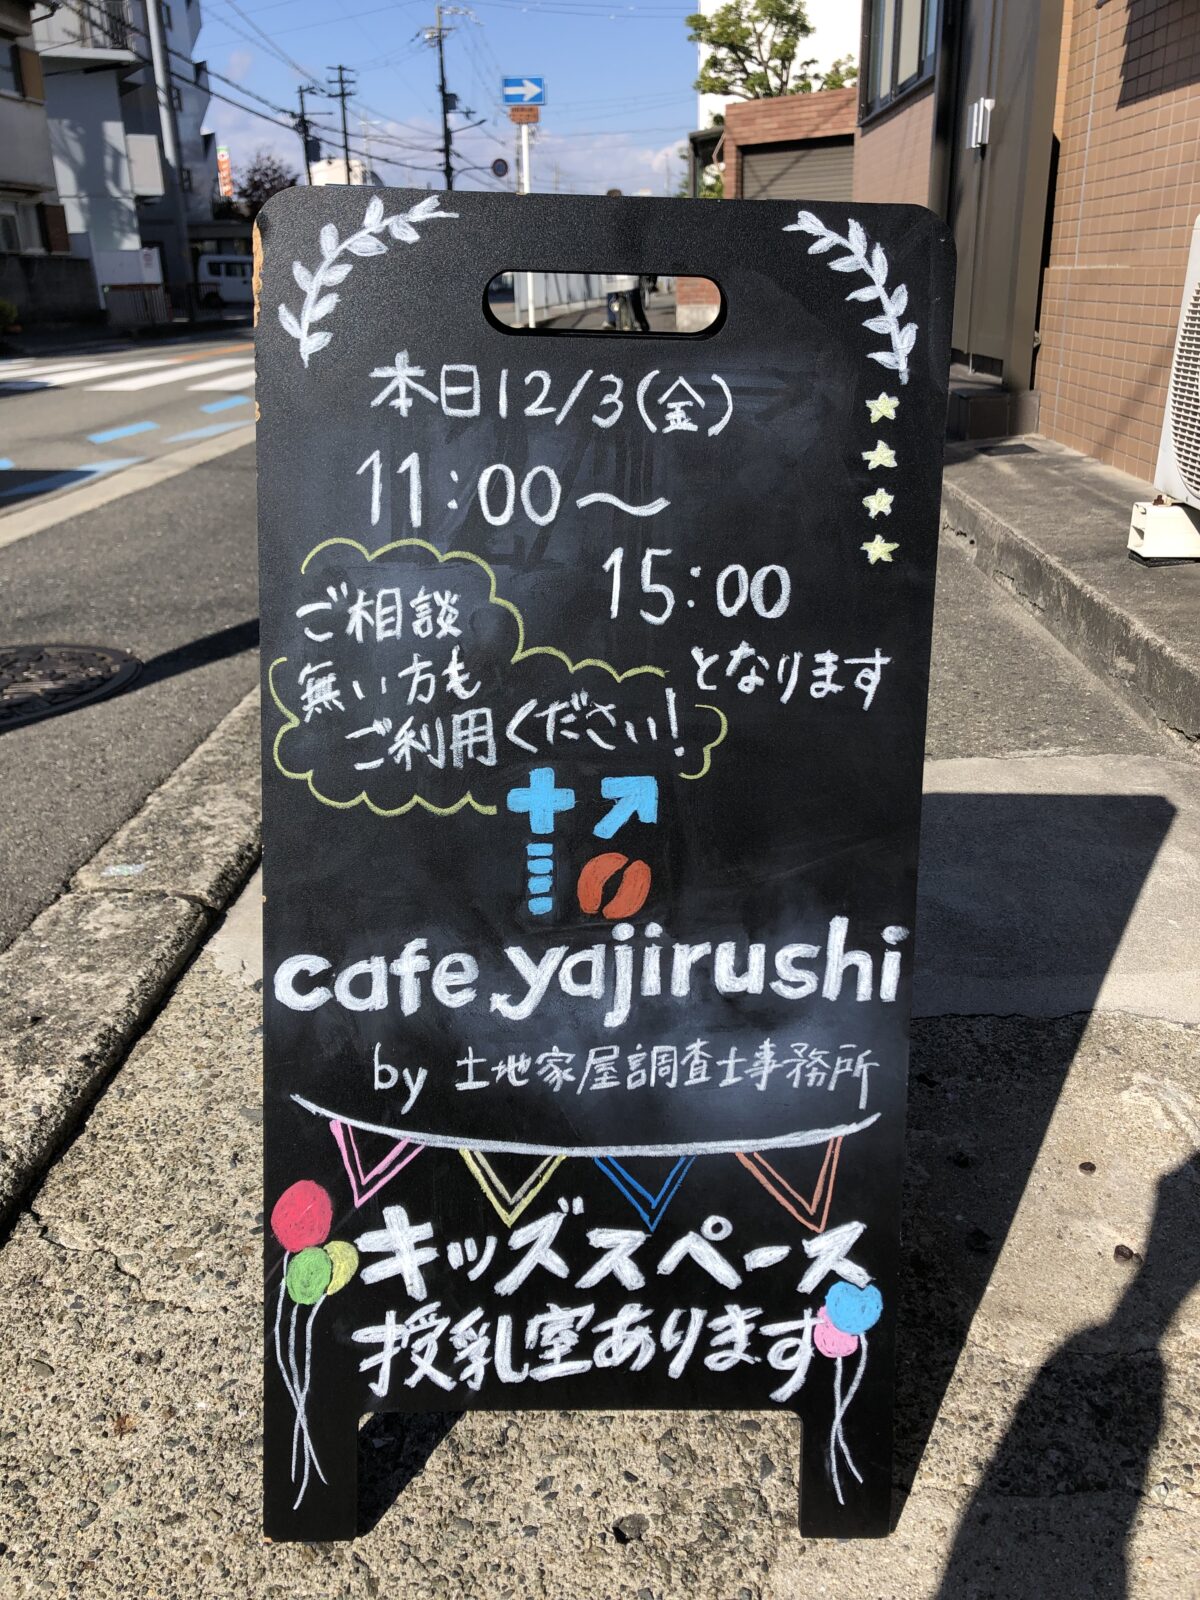 本日12/3(金)
11:00〜
15:00
となります
ご相談
無い方も
ご利用ください!
cafe yajirushi
by 土地家屋調査士事務所
キッズスペース
授乳室あります